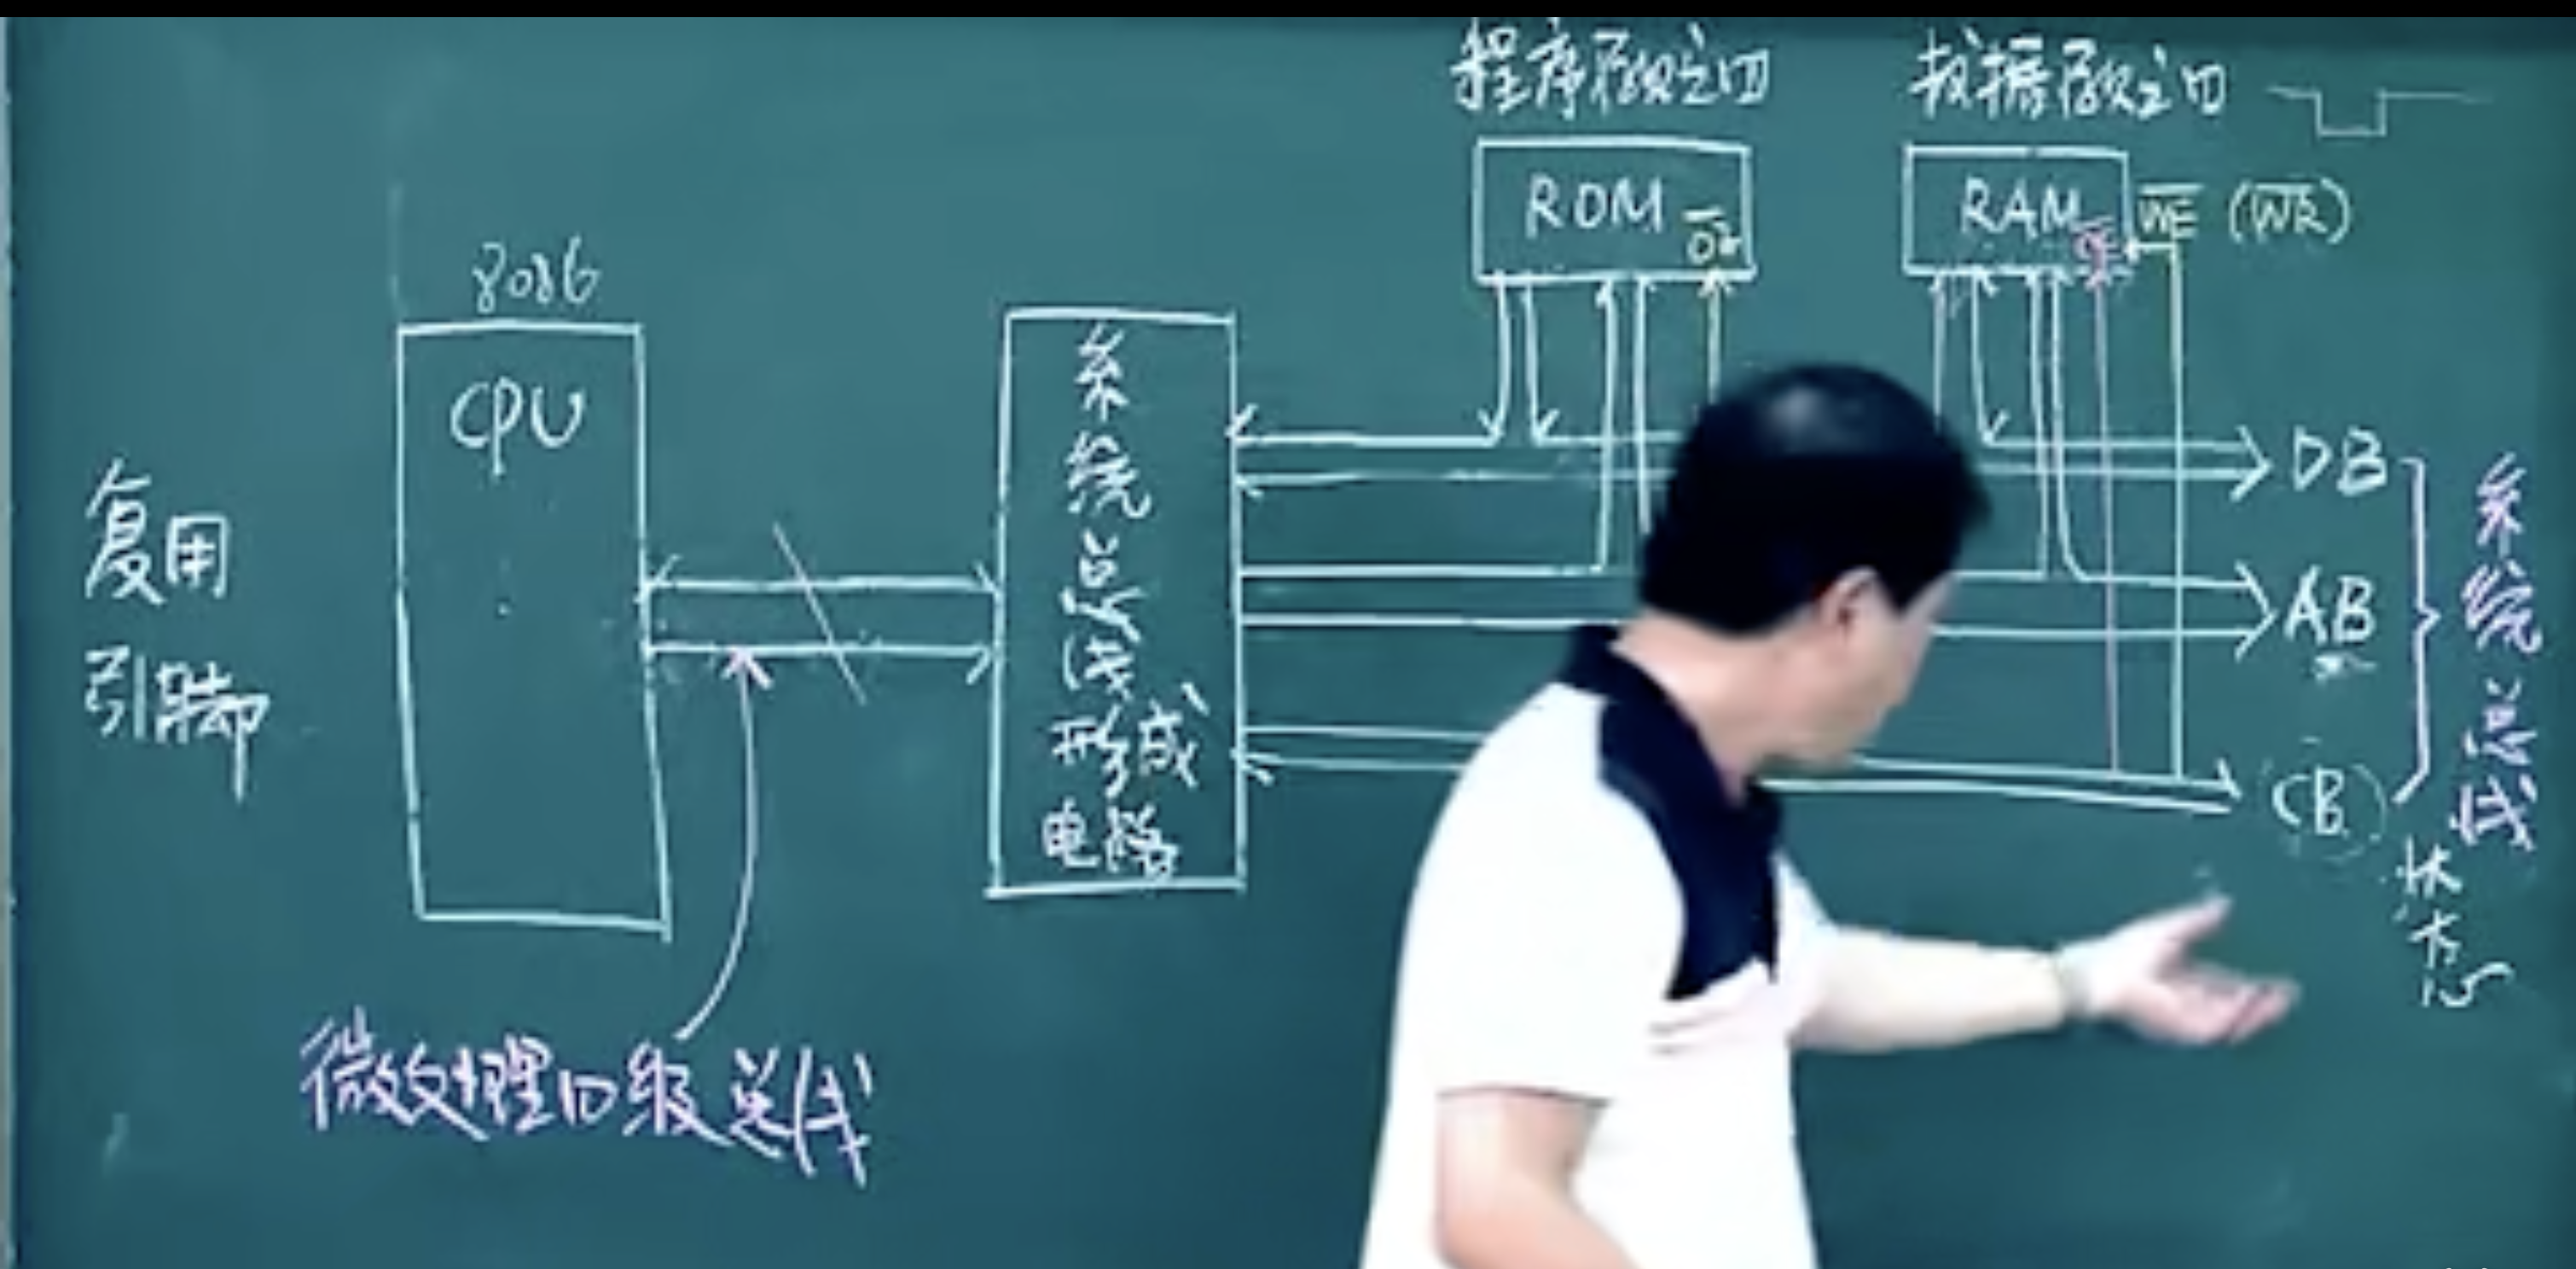 程序存贮器
数据存贮器
ROM
OE
RAM
OE
WE (WR)
8086
CPU
系统总线形成电路
DB
AB
CB
系统总线
状态
复用
引脚
微处理器级总线